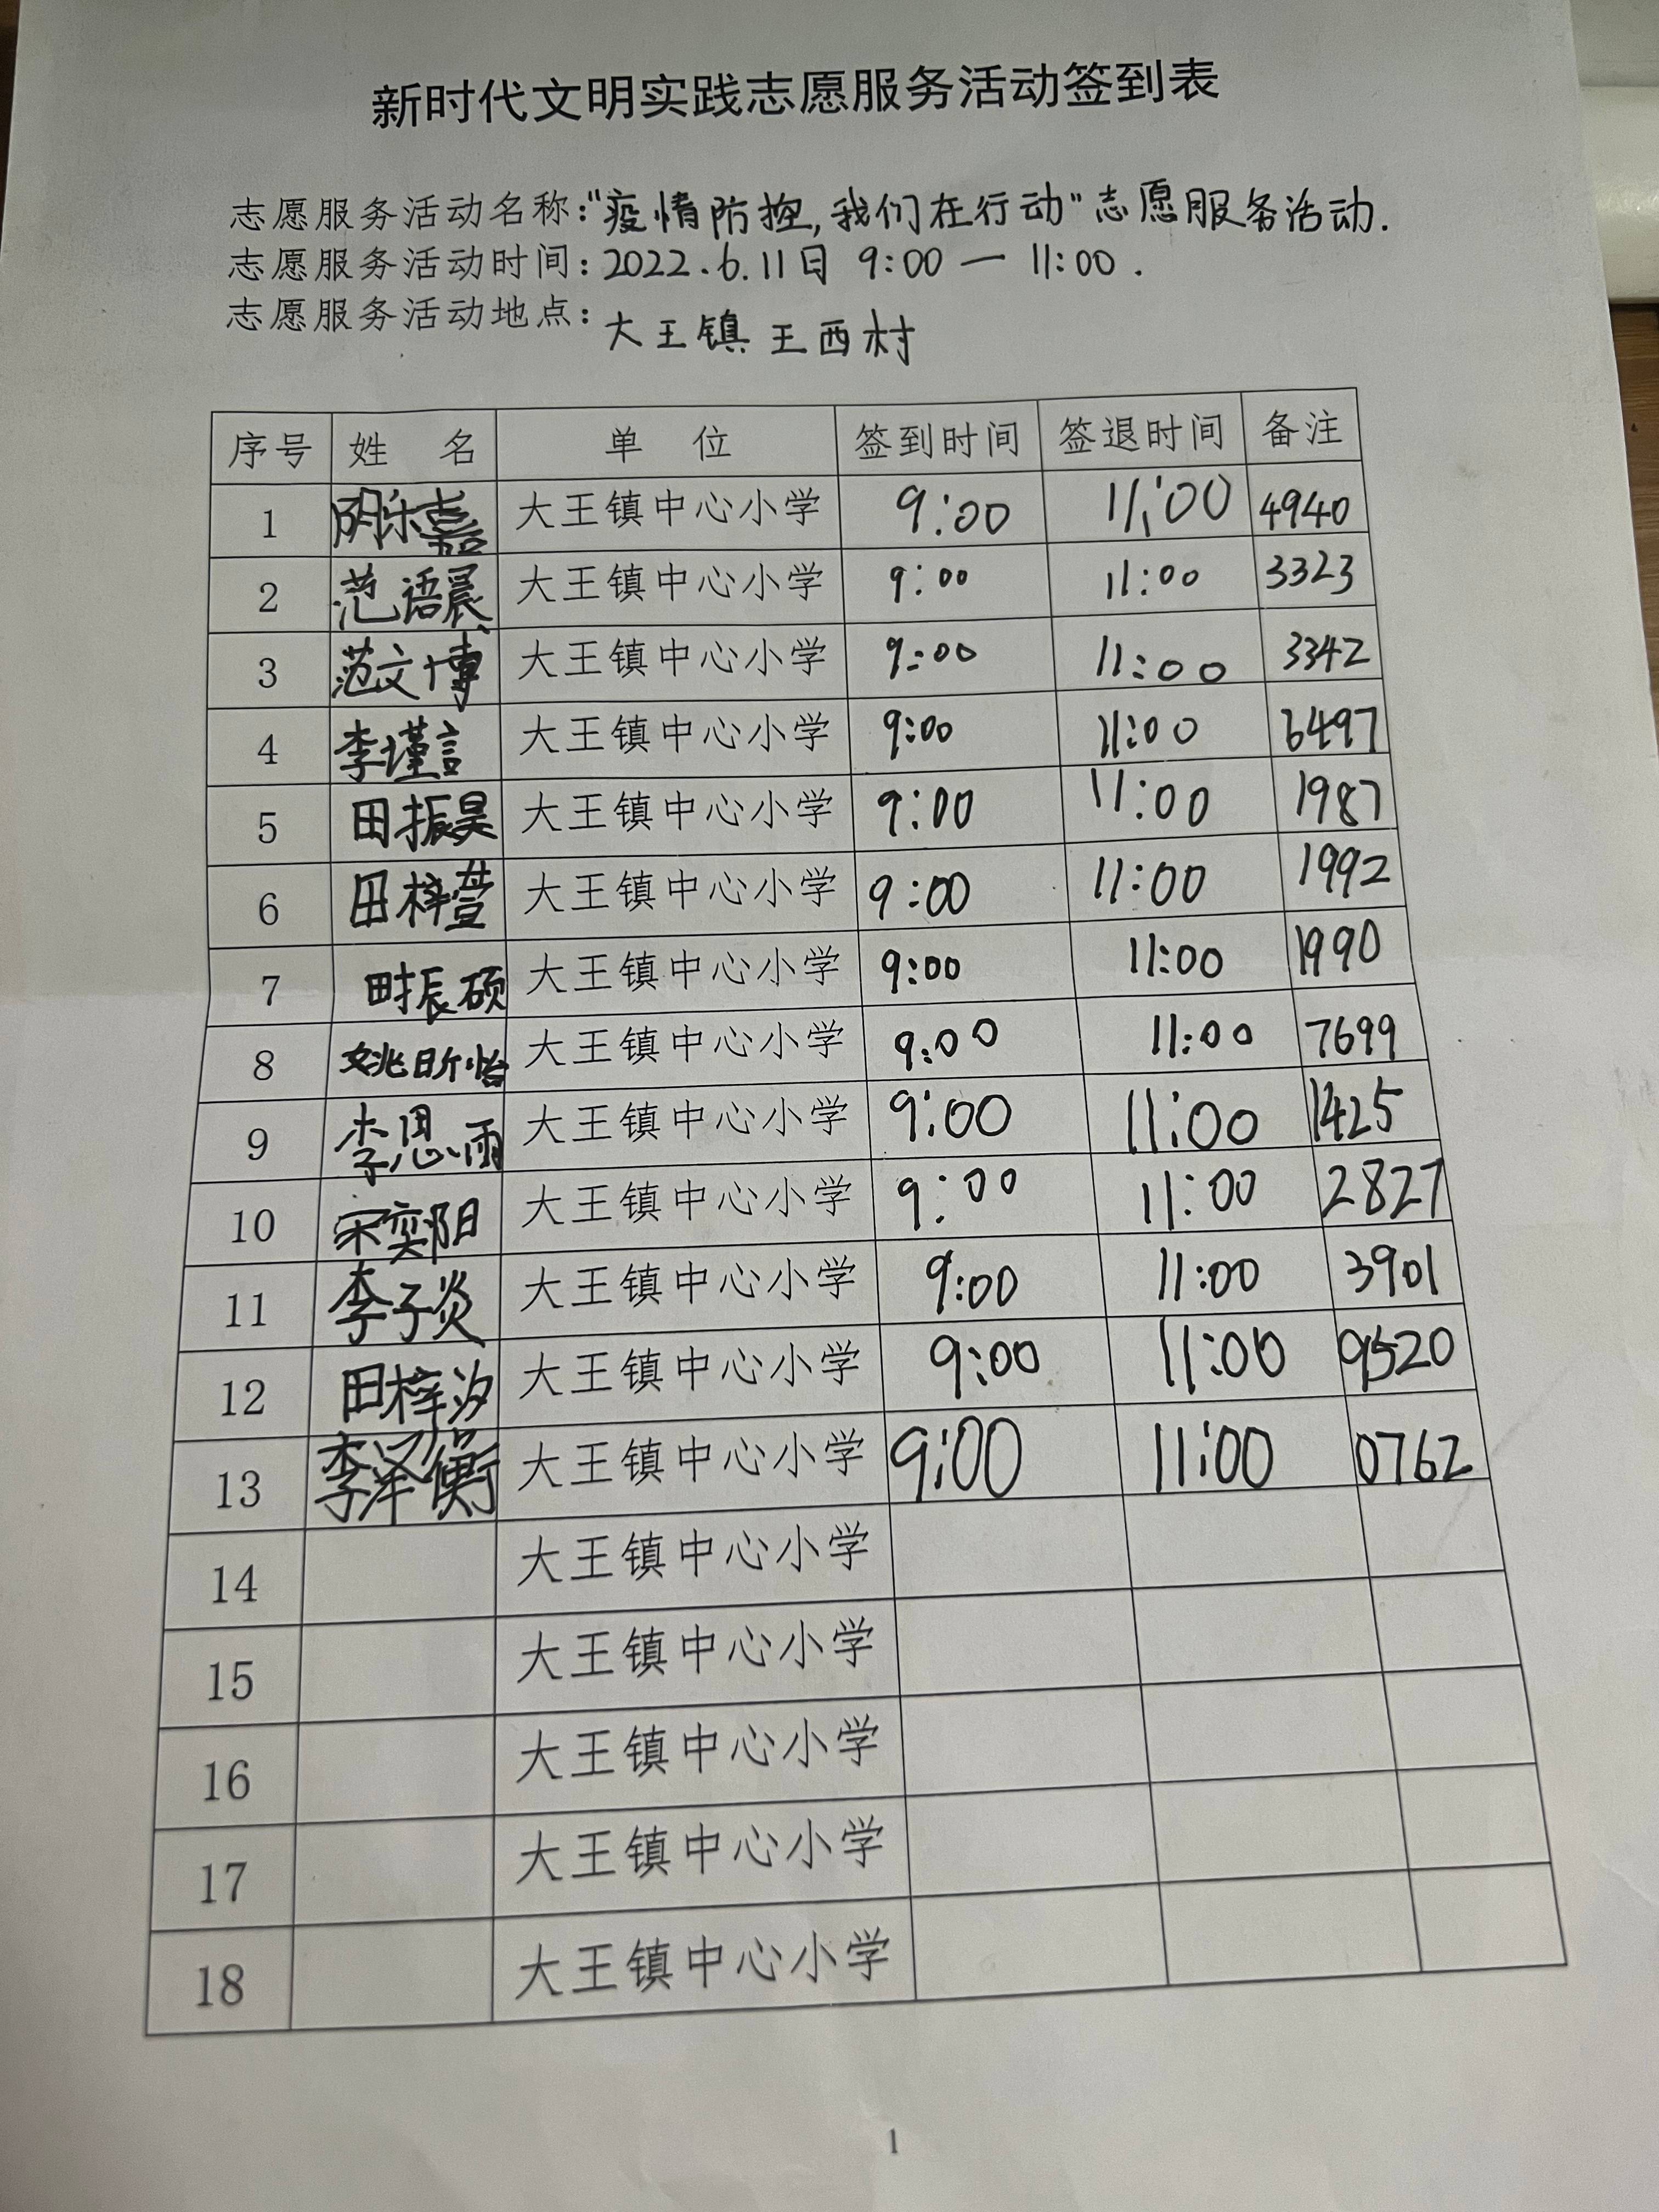 新时代文明实践志愿服务活动签到表
志愿服务活动名称:"疫情防控,我们在行动"志愿服务活动.
志愿服务活动时间:2022.6.11日 9:00 一 11:00.
志愿服务活动地点:大王镇 王西村
序号 姓 名 单 位 签到时间 签退时间 备注
1 阴乐嘉 大王镇中心小学 9:00 11:00 4940
2 范语晨 大王镇中心小学 9:00 11:00 3323
3 范文博 大王镇中心小学 9:00 11:00 3342
4 李瑾言 大王镇中心小学 9:00 11:00 6497
5 田振昊 大王镇中心小学 9:00 11:00 1987
6 田梓萱 大王镇中心小学 9:00 11:00 1992
7 田振硕 大王镇中心小学 9:00 11:00 1990
8 姚昕怡 大王镇中心小学 9:00 11:00 7699
9 李思雨 大王镇中心小学 9:00 11:00 1425
10 宋奕阳 大王镇中心小学 9:00 11:00 2827
11 李子炎 大王镇中心小学 9:00 11:00 3901
12 田梓汐 大王镇中心小学 9:00 11:00 9520
13 李泽衡 大王镇中心小学 9:00 11:00 0762
14 大王镇中心小学
15 大王镇中心小学
16 大王镇中心小学
17 大王镇中心小学
18 大王镇中心小学
1